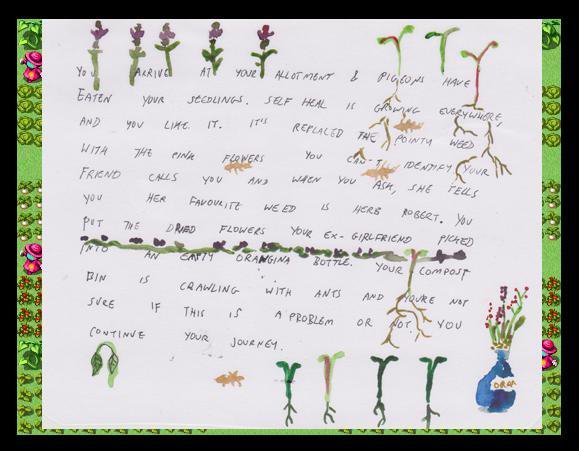 YOU ARRIVE AT YOUR ALLOTMENT & PIGEONS HAVE
EATEN YOUR SEEDLINGS. SELF HEAL IS GROWING EVERYWHERE,
AND YOU LIKE IT. IT'S REPLACED THE POINTY WEED
WITH THE PINK FLOWERS YOU CAN'T IDENTIFY. YOUR
FRIEND CALLS YOU AND WHEN YOU ASK, SHE TELLS
YOU HER FAVOURITE WEED IS HERB ROBERT. YOU
PUT THE DRIED FLOWERS YOUR EX-GIRLFRIEND PICKED
INTO AN EMPTY ORANGINA BOTTLE. YOUR COMPOST
BIN IS CRAWLING WITH ANTS AND YOU'RE NOT
SURE IF THIS IS A PROBLEM OR NOT. YOU
CONTINUE YOUR JOURNEY.